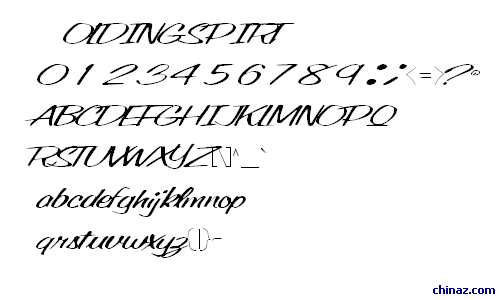 OLDINGSPIRT
0123456789:;<=>?@
ABCDEFGHIJKLMNOPQ
RSTUVWXYZ[\]^_`
abcdefghijklmnop
qrstuvwxyz{|}~
chinaz.com